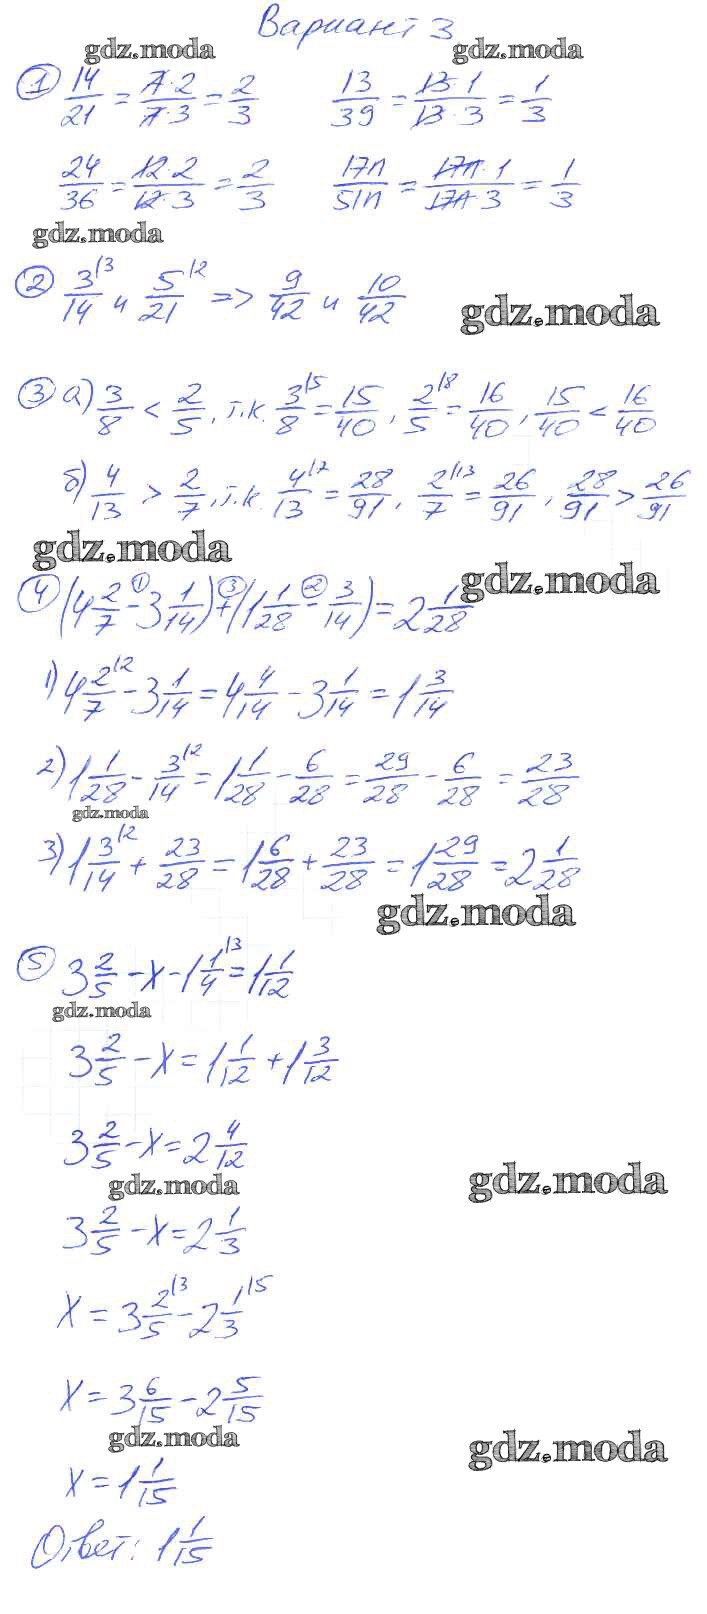 Вариант 3
gdz.moda gdz.moda
① 14/21 = 7·2/7·3 = 2/3 13/39 = 13·1/13·3 = 1/3
24/36 = 12·2/12·3 = 2/3 17п/51п = 17п·1/17п·3 = 1/3
gdz.moda
② 3/14 |3 и 5/21 |2 => 9/42 и 10/42
gdz.moda
③ а) 3/8 < 2/5, т.к. 3/8 |5 = 15/40, 2/5 |8 = 16/40, 15/40 < 16/40
б) 4/13 > 2/7, т.к. 4/13 |7 = 28/91, 2/7 |13 = 26/91, 28/91 > 26/91
gdz.moda gdz.moda
④ (4 2/7 -① 3 1/14) +③ (1 1/28 -② 3/14) = 2 1/28
1) 4 2/7 |2 - 3 1/14 = 4 4/14 - 3 1/14 = 1 3/14
2) 1 1/28 - 3/14 |2 = 1 1/28 - 6/28 = 29/28 - 6/28 = 23/28
gdz.moda
3) 1 3/14 |2 + 23/28 = 1 6/28 + 23/28 = 1 29/28 = 2 1/28
gdz.moda
⑤ 3 2/5 - x - 1 1/4 |3 = 1 1/12
gdz.moda
3 2/5 - x = 1 1/12 + 1 3/12
3 2/5 - x = 2 4/12
gdz.moda gdz.moda
3 2/5 - x = 2 1/3
x = 3 2/5 |3 - 2 1/3 |5
x = 3 6/15 - 2 5/15
gdz.moda gdz.moda
x = 1 1/15
Ответ: 1 1/15